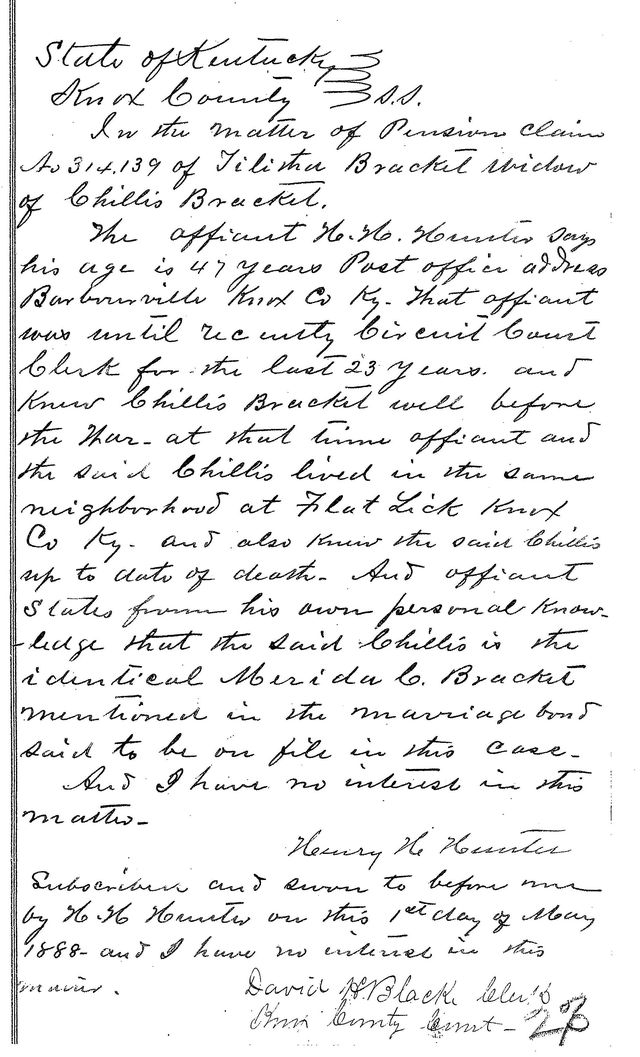 State of Kentucky
Knox County S.S.
In the matter of Pension claim
No 314,139 of Tilitha Bracket Widow
of Chillis Bracket.
The affiant H. H. Hunter says
his age is 47 years Post office address
Barbourville Knox Co Ky. That affiant
was until recently Circuit Court
Clerk for the last 23 years. and
Knew Chillis Bracket well before
the War - at that time affiant and
the said Chillis lived in the same
neighborhood at Flat Lick Knox
Co Ky. and also knew the said Chillis
up to date of death - And affiant
States from his own personal Know-
-ledge that the said Chillis is the
identical Merida C. Bracket
mentioned in the marriage bond
said to be on file in this case -
And I have no interest in this
matter -
Henry H Hunter
Subscribed and sworn to before me
by H. H Hunter on this 1st day of May
1888 - and I have no interest in this
matter.
David H. Black Clerk
Knox County Court -